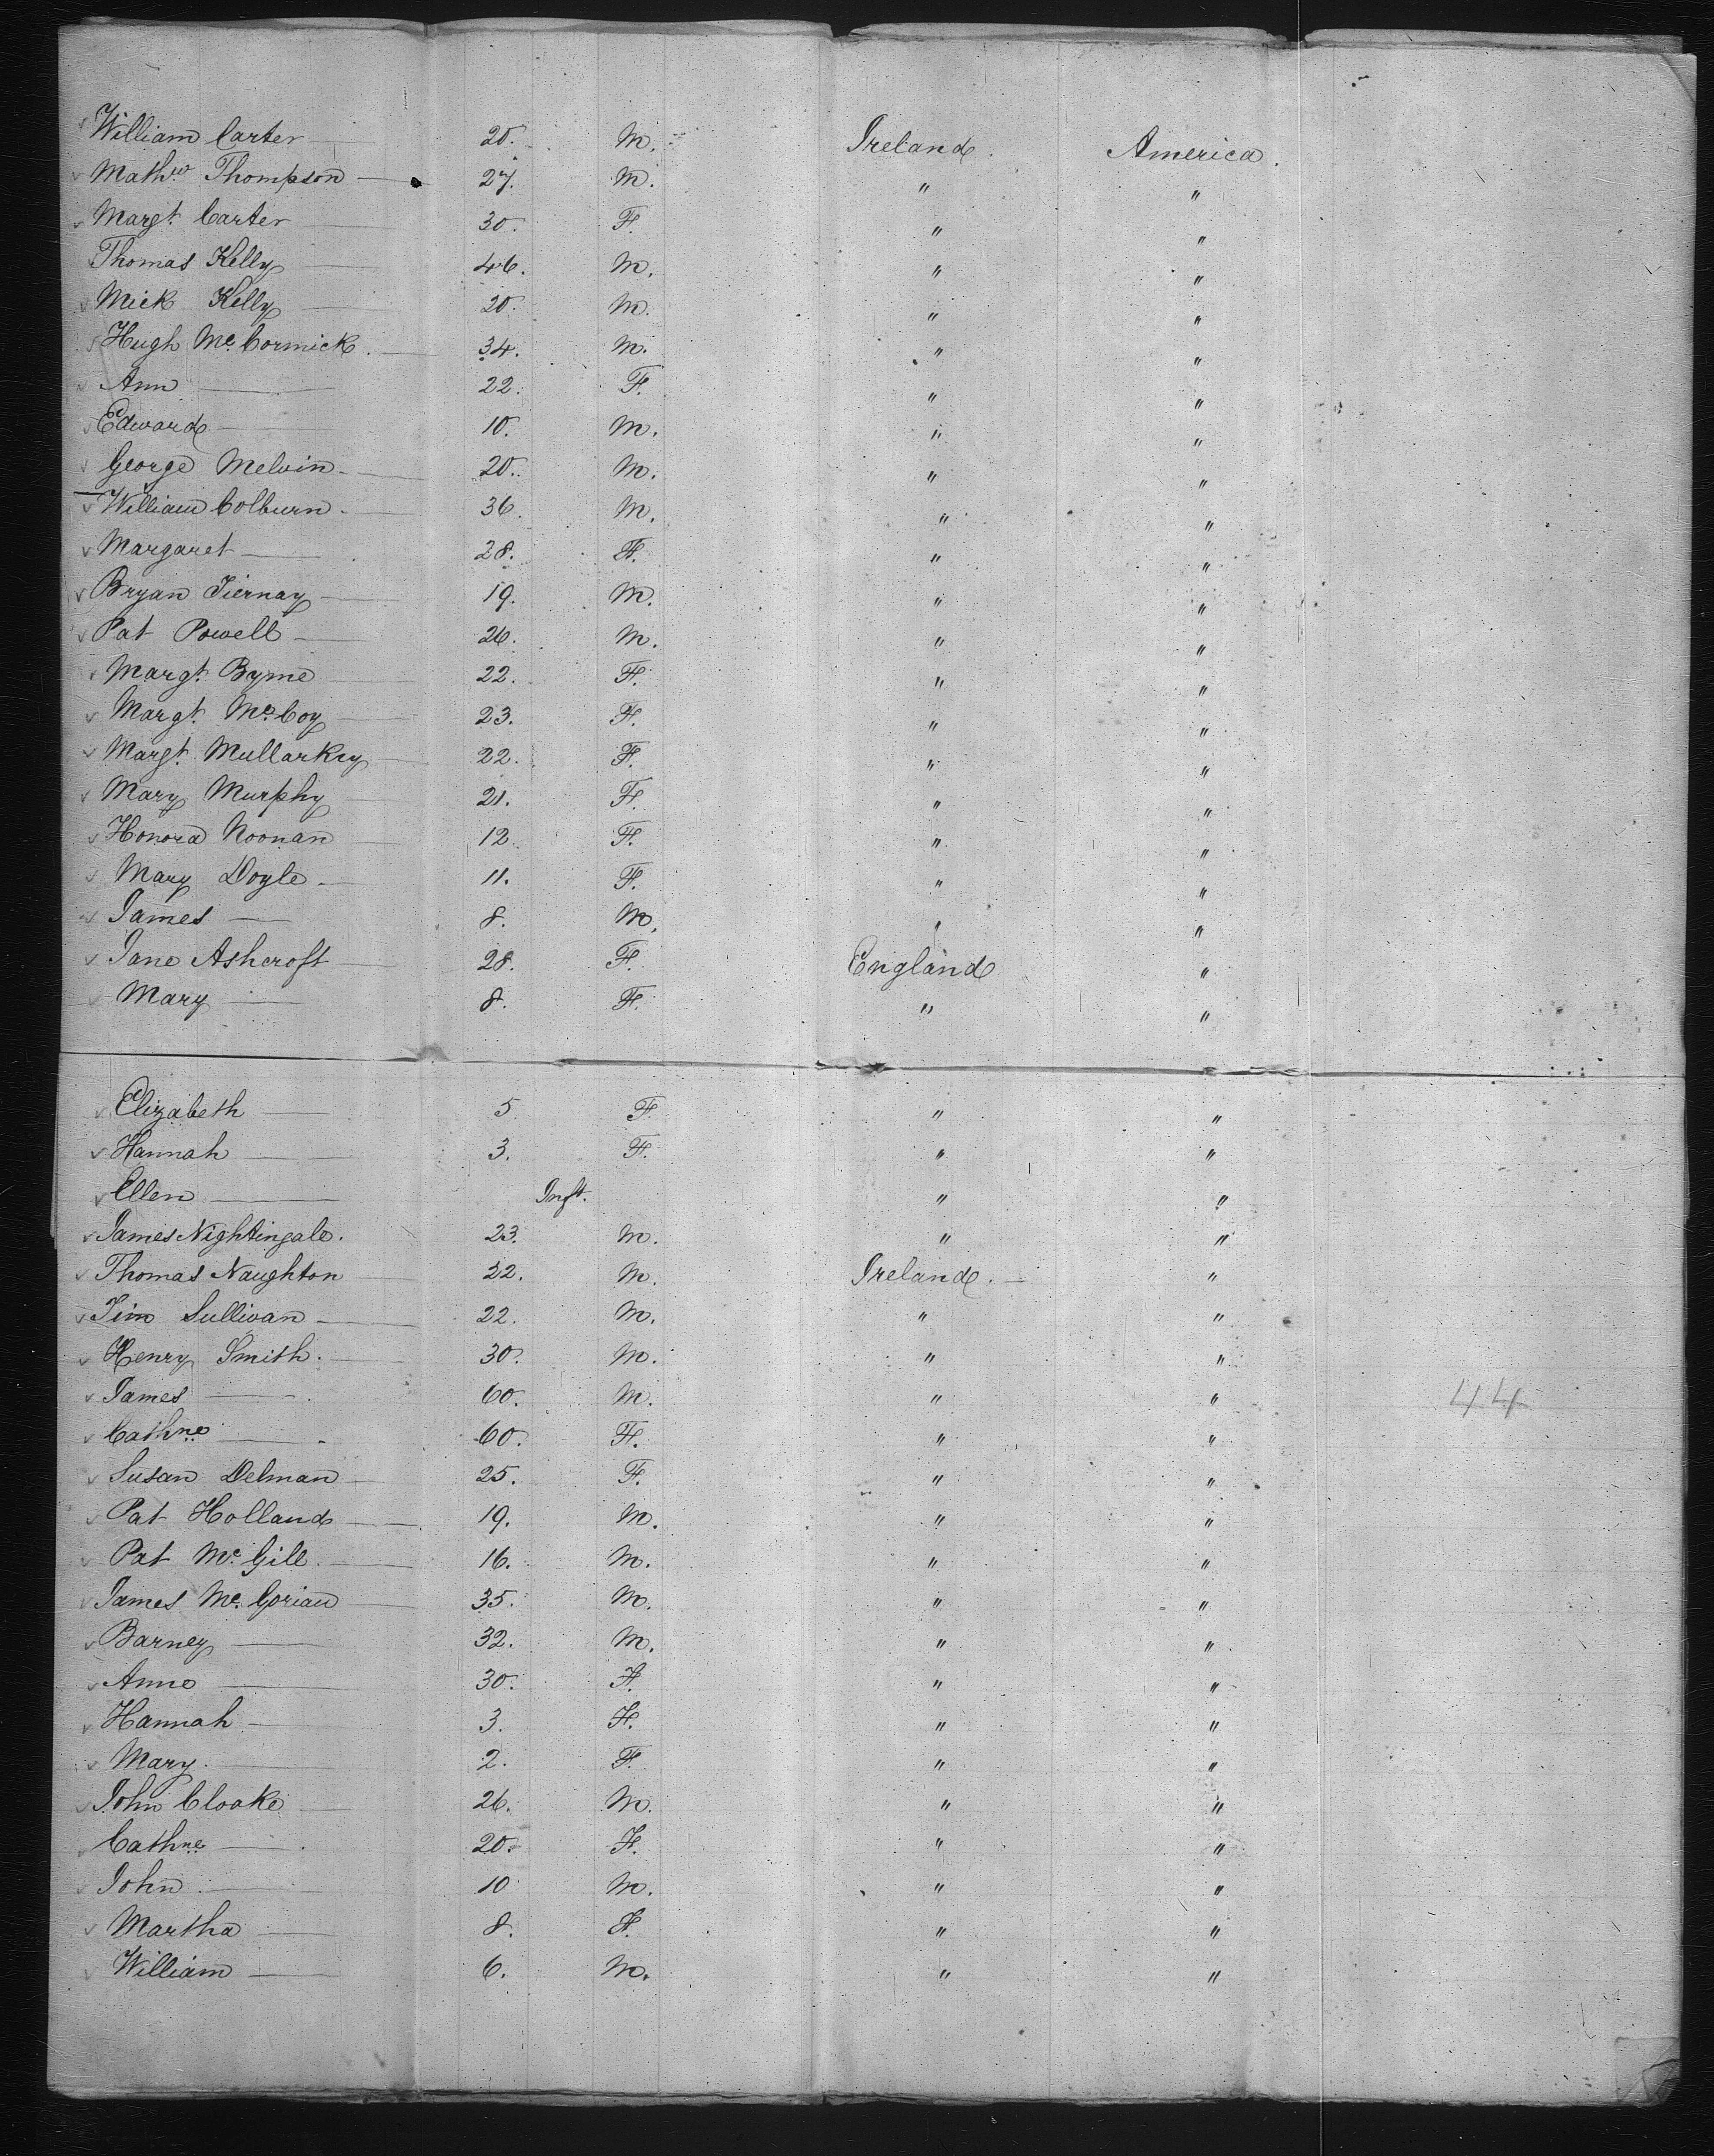 William Carter — 20. M. Ireland. America.
Mathw Thompson — 27. M. " "
Margt. Carter — 30. F. " "
Thomas Kelly — 46. M. " "
Mick Kelly — 20. M. " "
Hugh Mc.Cormick. — 34. M. " "
Ann — 22. F. " "
Edward — 10. M. " "
George Melvin — 20. M. " "
William Colburn. — 36. M. " "
Margaret — 28. F. " "
Bryan Tiernay — 19. M. " "
Pat Powell — 26. M. " "
Margt. Byrne — 22. F. " "
Margt. Mc.Coy — 23. F. " "
Margt. Mullarkey — 22. F. " "
Mary Murphy — 21. F. " "
Honora Noonan — 12 F. " "
Mary Doyle — 11. F. " "
James — 8. M. " "
Jane Ashcroft — 28. F. England "
Mary — 8. F. " "
Elizabeth — 5. F. " "
Hannah — 3. F. " "
Ellen — Inft. " "
James Nightingale. 23. M. " "
Thomas Naughton — 22. M. Ireland. — "
Tim Sullivan — 22. M. " "
Henry Smith. — 30. M. " "
James — 60. M. " " 44
Cathne — 60. F. " "
Susan Delman — 25. F. " "
Pat Holland — 19. M. " "
Pat Mc.Gill. — 16. M. " "
James Mc.Gorian — 35. M. " "
Barney — 32. M. " "
Anne — 30. F. " "
Hannah — 3. F. " "
Mary. — 2. F. " "
John Cloake — 26. M. " "
Cathne — 20. F. " "
John — 10 M. " "
Martha — 8. F. " "
William — 6. M. " "